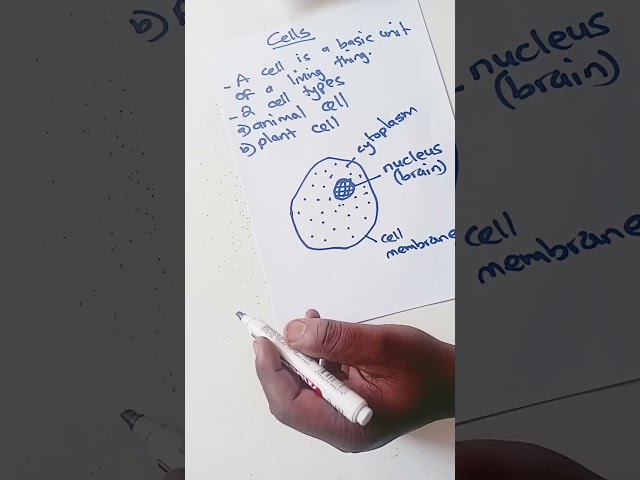 Cells
- A cell is a basic unit
of a living thing.
- 2 cell types
a) animal cell
b) plant cell
cytoplasm
nucleus
(brain)
cell
membrane